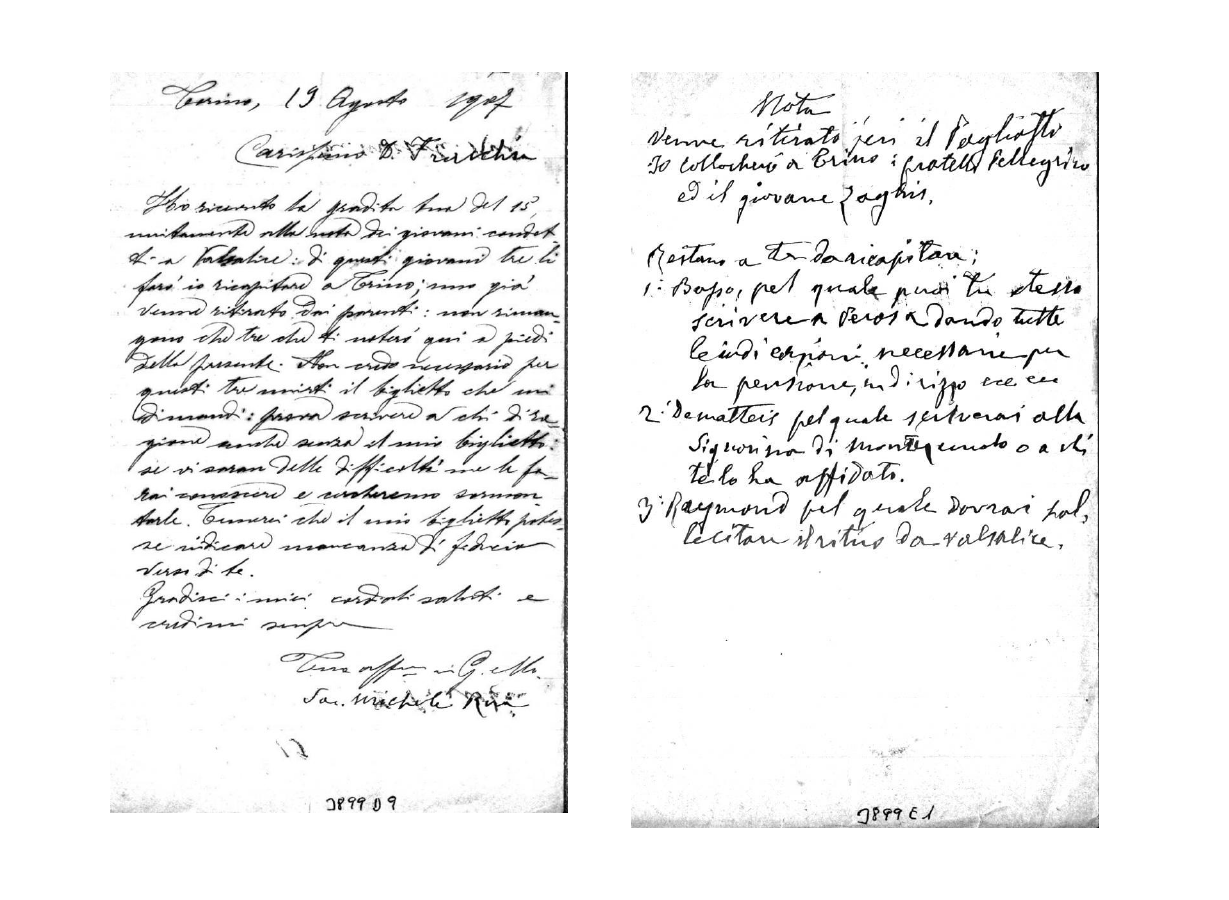 Torino, 19 Agosto 1907
Carissimo D.
Ho ricevuto la gradita tua del 15,
unitamente alla nota dei giovani condot
ti a Valsalice: di questi giovani tre li
farò io ricapitare a Trino; uno già
venne ritirato dai parenti: non riman
gono che tre che ti noterò qui a piedi
della presente. Non credo necessario per
questi tre unirti il biglietto che mi
dimandi: prova scrivere a chi di ra
gione anche senza il mio biglietto:
se vi saran delle difficoltà me le fa
rai conoscere e cercheremo sormon
tarle. Temerei che il mio biglietto potes
se indicare mancanza di fiducia
verso di te.
Gradisci i miei cordiali saluti e
credimi sempre
Tuo aff in G. e M.
Sac. Michele Rua
J899 D 9
Nota
Venne ritirato jeri il Pagliotti
Io collocherò a Trino i fratelli Pellegrino
ed il giovane Zaghis.
Restano a te da ricapitare:
1: Bosso, pel quale puoi tu stesso
scrivere a Perosa dando tutte
le indicazioni necessarie per
la pensione, indirizzo ecc ecc
2: Dematteis pel quale scriverai alla
Signorina di o a chi
te lo ha affidato.
3: Raymond pel quale dovrai sol,
lecitare il ritiro da Valsalice.
J899 E 1